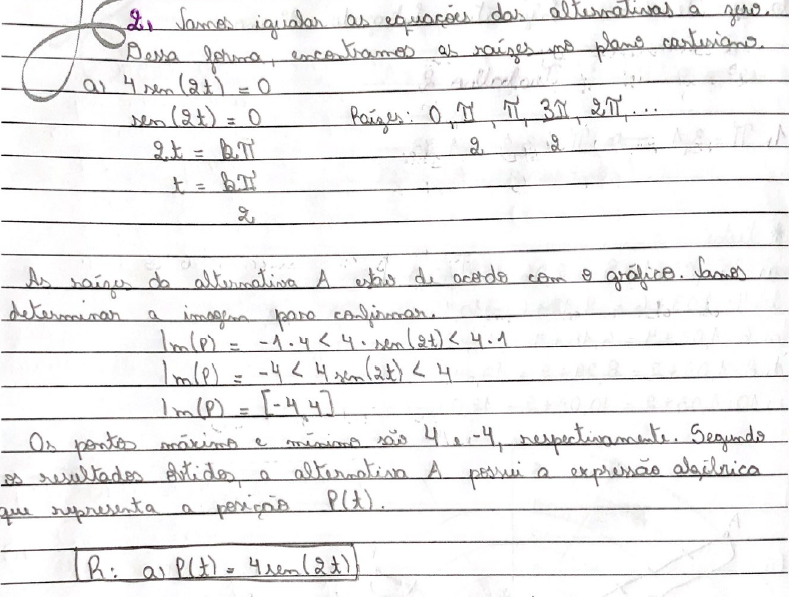 2. Vamos igualar as equações das alternativas a zero.
Dessa forma, encontramos as raízes no plano cartesiano.
a) 4 sen(2t) = 0
sen(2t) = 0 Raízes: 0, π/2, π, 3π/2, 2π, ...
2t = kπ
t = kπ/2
As raízes da alternativa A estão de acordo com o gráfico. Vamos
determinar a imagem para confirmar.
Im(P) = -1·4 < 4·sen(2t) < 4·1
Im(P) = -4 < 4 sen(2t) < 4
Im(P) = [-4,4]
Os pontos máximo e mínimo são 4 e -4, respectivamente. Segundo
os resultados obtidos, a alternativa A possui a expressão algébrica
que representa a posição P(t).
R: a) P(t) = 4 sen(2t)